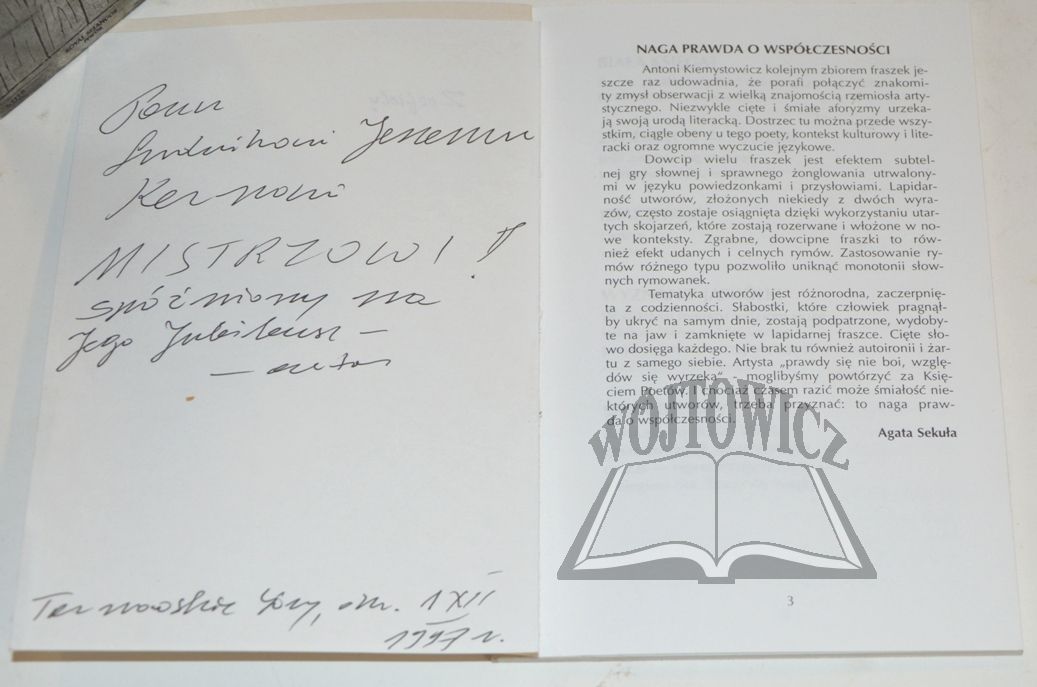 Panu
Ludwikowi Jerzemu
Kernowi
MISTRZOWI!
spóźniony na
Jego Jubileusz –
– autor
Tarnowskie Góry, dn. 1 XII
1997 r.
NAGA PRAWDA O WSPÓŁCZESNOŚCI
Antoni Kiemystowicz kolejnym zbiorem fraszek je-
szcze raz udowadnia, że porafi połączyć znakomi-
ty zmysł obserwacji z wielką znajomością rzemiosła arty-
stycznego. Niezwykle cięte i śmiałe aforyzmy urzeka-
ją swoją urodą literacką. Dostrzec tu można przede wszy-
stkim, ciągle obeny u tego poety, kontekst kulturowy i lite-
racki oraz ogromne wyczucie językowe.
Dowcip wielu fraszek jest efektem subtel-
nej gry słownej i sprawnego żonglowania utrwalony-
mi w języku powiedzonkami i przysłowiami. Lapidar-
ność utworów, złożonych niekiedy z dwóch wyra-
zów, często zostaje osiągnięta dzięki wykorzystaniu utar-
tych skojarzeń, które zostają rozerwane i włożone w no-
we konteksty. Zgrabne, dowcipne fraszki to rów-
nież efekt udanych i celnych rymów. Zastosowanie ry-
mów różnego typu pozwoliło uniknąć monotonii słow-
nych rymowanek.
Tematyka utworów jest różnorodna, zaczerpnię-
ta z codzienności. Słabostki, które człowiek pragnął-
by ukryć na samym dnie, zostają podpatrzone, wydoby-
te na jaw i zamknięte w lapidarnej fraszce. Cięte sło-
wo dosięga każdego. Nie brak tu również autoironii i żar-
tu z samego siebie. Artysta „prawdy się nie boi, wzglę-
dów się wyrzeka“ - moglibyśmy powtórzyć za Księ-
ciem Poetów. I chociaż czasem razić może śmiałość nie-
których utworów, trzeba przyznać: to naga praw-
da o współczesności.
Agata Sekuła
WÓJTOWICZ
3